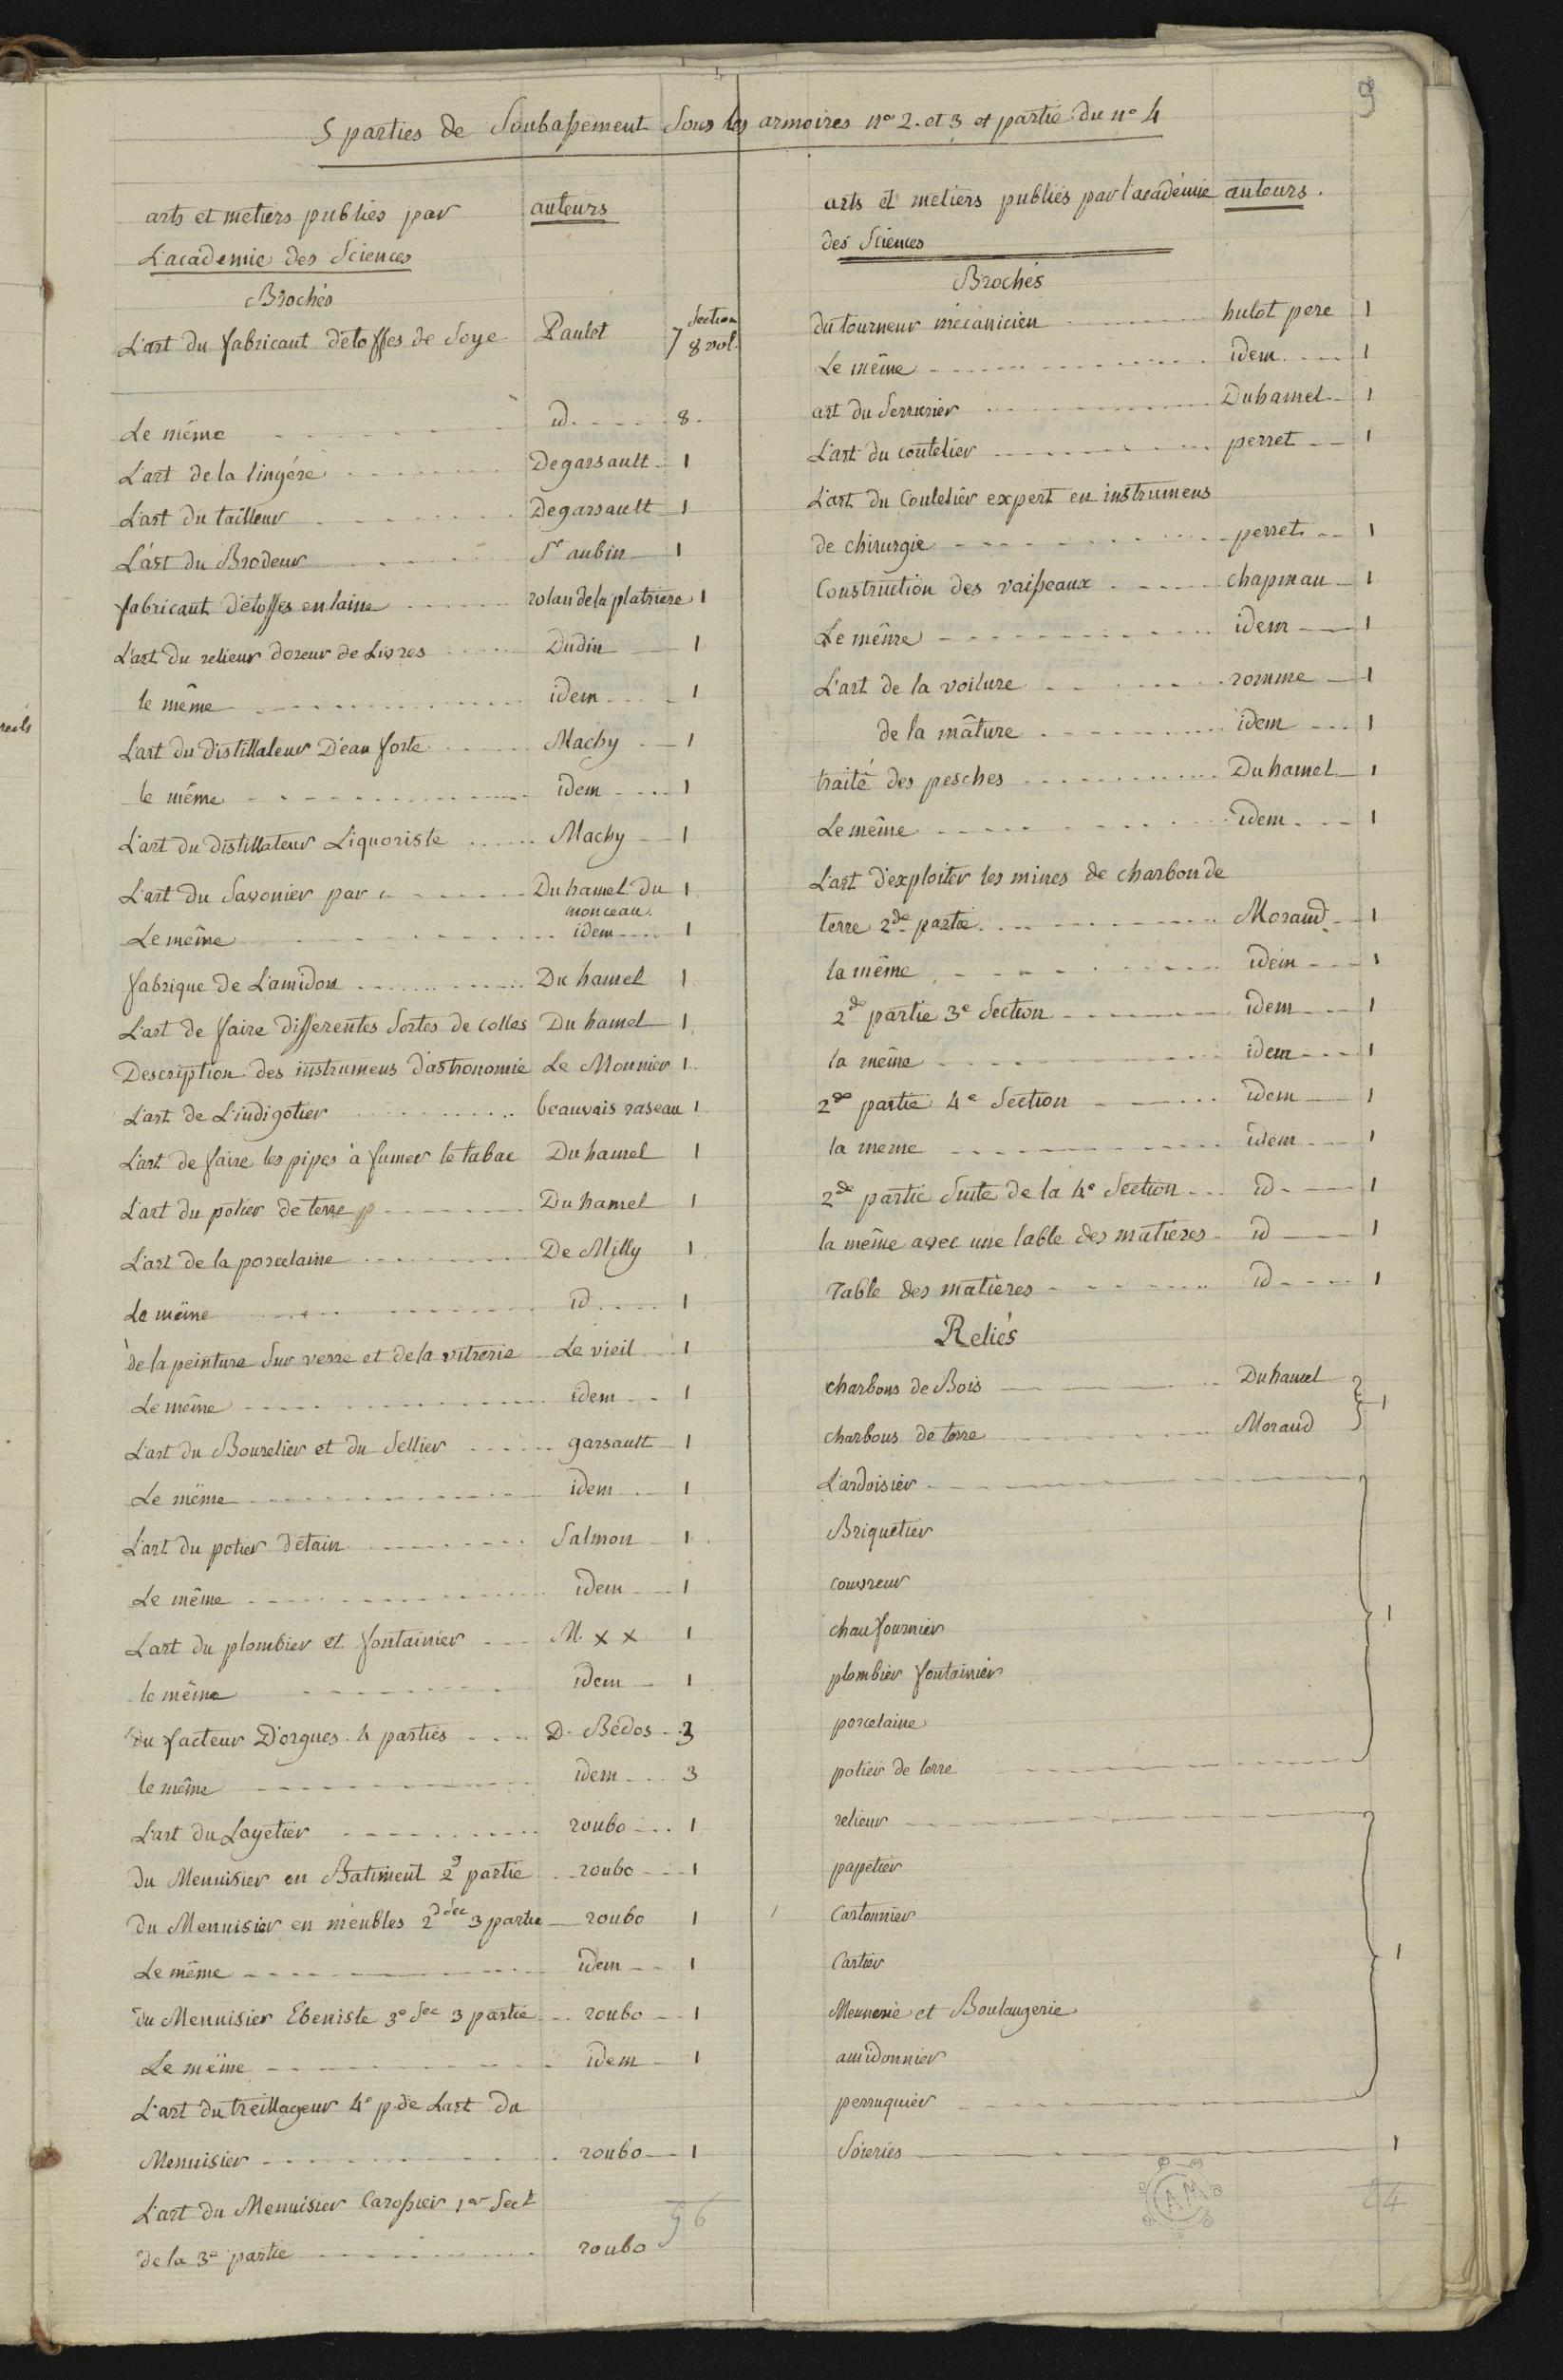 9
5 parties de Soubassement Sous les armoires nos 2. et 3 et partie du n° 4
arts et metiers publiés par auteurs
L'academie des Sciences
Brochés
L'art du fabricant d'etoffes de Soye Paulet 7 Section 8 vol.
Le même id. 8.
L'art de la lingére Degarsault 1
L'art du tailleur Degarsault 1
L'art du Brodeur St aubin 1
fabricant d'etoffes en laine rolan de la platriere 1
L'art du relieur doreur de Livres Dudin 1
le même idem 1
L'art du distillateur D'eau forte Machy 1
le même idem 1
L'art du distillateur Liquoriste Machy 1
L'art du Savonier par Duhamel du monceau. 1
Le même idem 1
fabrique de L'amidon Du hamel 1
L'art de faire differentes Sortes de colles Du hamel 1
Description des instrumens d'astronomie Le Monnier 1
L'art de L'indigotier beauvais raseau 1
L'art de faire les pipes à fumer le tabac Duhamel 1
L'art du potier de terre Duhamel 1
L'art de la porcelaine De Milly 1
Le même id 1
de la peinture Sur verre et de la vitrerie Le vieil 1
Le même idem 1
L'art du Bourelier et du Sellier garsault 1
Le même idem 1
L'art du potier d'etain Salmon 1
Le même idem 1
L'art du plombier et fontainier M. x x 1
le même idem 1
du facteur D'orgues. 4 parties D. Bédos 3
le même idem 3
L'art du Layetier roubo 1
du Menuisier en Batiment 2d partie roubo 1
du Menuisier en meubles 2d Sec 3 partie roubo 1
Le même idem 1
du Menuisier Ebeniste 3e Sec 3 partie roubo 1
Le même idem 1
L'art du treillageur 4e p. de Lart du
Menuisier roubo 1
L'art du Menuisier Carossier 1er Sect
de la 3e partie roubo
56
arts et metiers publiés par l'académie auteurs.
des Sciences
Brochés
du tourneur mécanicien hulot pere 1
Le même idem 1
art du Serrurier Duhamel 1
L'art du coutelier perret 1
L'art du Coutelier expert en instrumens
de chirurgie perret 1
Construction des vaisseaux chapman 1
Le même idem 1
L'art de la voilure romme 1
de la mâture idem 1
traité des pesches Duhamel 1
Le même idem 1
L'art d'exploiter les mines de charbon de
terre 2de partie Morand 1
la même idem 1
2de partie 3e Section idem 1
la même idem 1
2de partie 4e Section idem 1
la meme idem 1
2de partie Suite de la 4e Section id 1
la même avec une table des matiéres id 1
Table des matieres id 1
Reliés
charbons de Bois Duhamel
charbons de terre Morand 1
L'ardoisier
Briquetier
couvreur
chaufournier 1
plombier fontainier
porcelaine
potier de terre
relieur
papetier
Cartonnier
Cartier 1
Meunerie et Boulangerie
amidonnier
perruquier
Soieries 1
AM
24